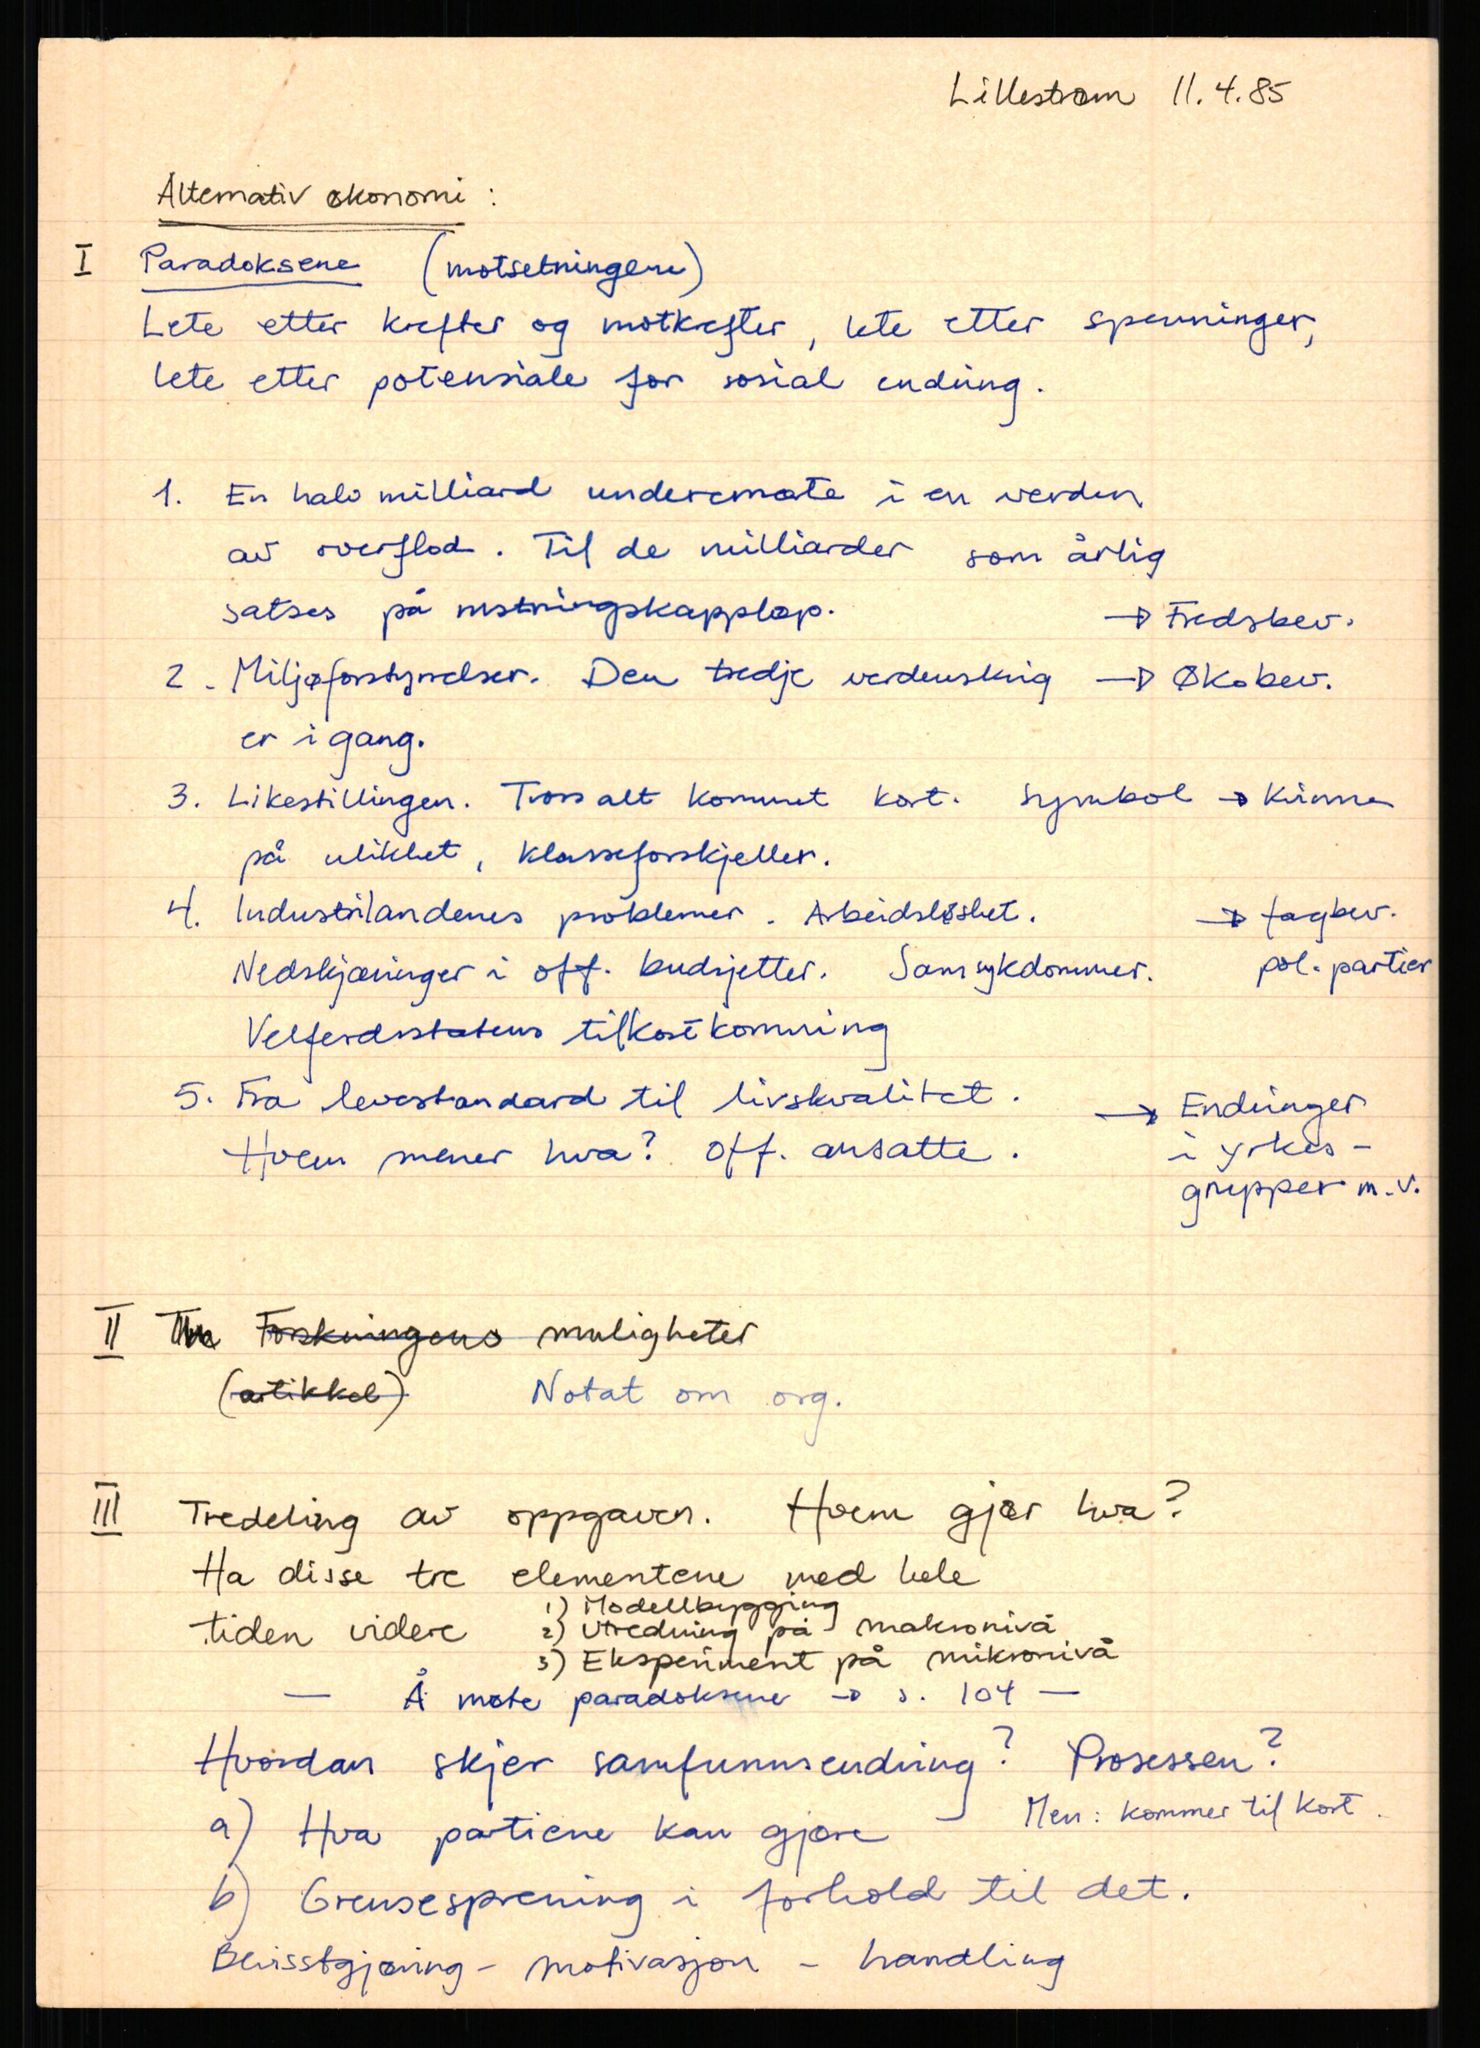 Lillestrøm 11.4.85
Alternativ økonomi :
I Paradoksene (motsetningene)
Lete etter krefter og motkrefter, lete etter spenninger,
lete etter potensiale for sosial endring.
1. En halv milliard underernærte i en verden
av overflod. Til de milliarder som årlig
satses på rustningskappløp. → Fredsbev.
2. Miljøforstyrrelser. Den tredje verdenskrig → Økobev.
er i gang.
3. Likestillingen. Tross alt kommet kort. Symbol → Kvinne
på ulikhet, klasseforskjeller.
4. Industrilandenes problemer. Arbeidsløshet. → fagbev.
Nedskjæringer i off. budsjetter. Samsykdommer. pol. partier
Velferdsstatens tilkostkomming
5. Fra levestandard til livskvalitet. → Endringer
Hvem mener hva? Off. ansatte. i yrkes-
grupper m.v.
II Forskningens muligheter
(artikkel) Notat om org.
III Tredeling av oppgaven. Hvem gjør hva?
Ha disse tre elementene med hele
tiden videre 1) Modellbygging
2) Utredning på makronivå
3) Eksperiment på mikronivå
— Å møte paradoksene → s. 104 —
Hvordan skjer samfunnsendring? Prosessen?
Men: kommer til kort.
a) Hva partiene kan gjøre
b) Grensesprening i forhold til det.
Bevisstgjøring - motivasjon - handling